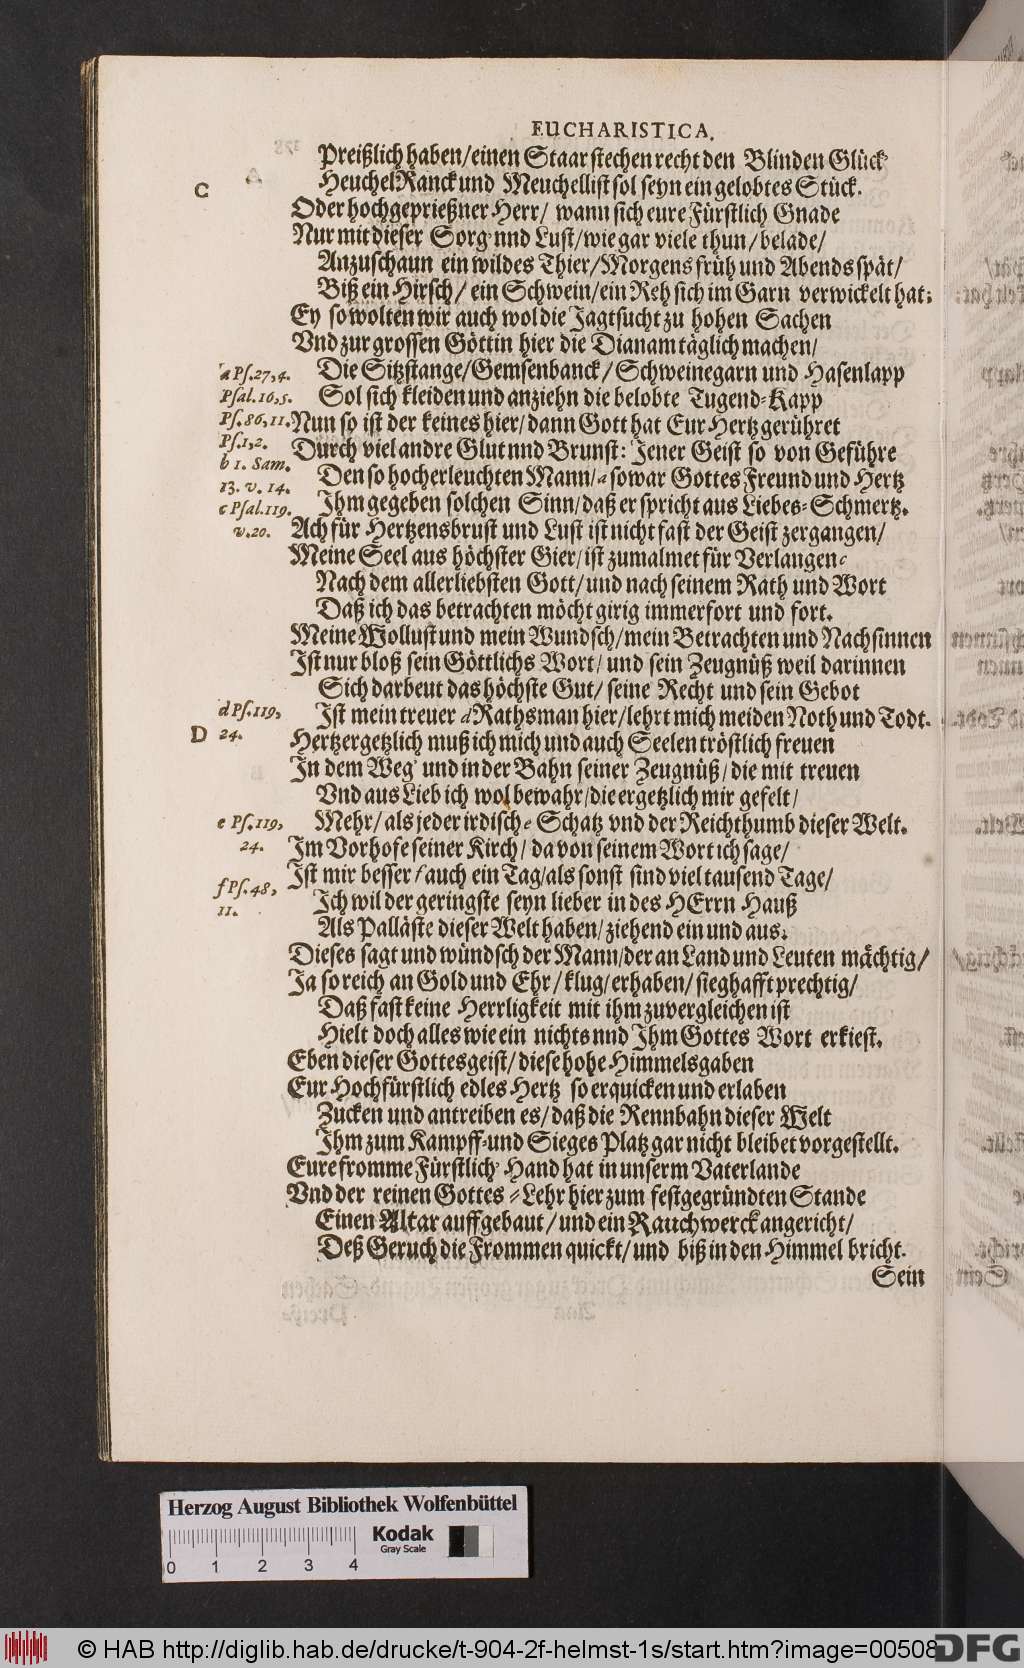 EUCHARISTICA.
Preißlich haben/einen Staar stechen recht den Blinden Glück
C
HeuchelRanck und Meuchellist sol seyn ein gelobtes Stück.
Oder hochgeprießner Herr/ wann sich eure Fürstlich Gnade
Nur mit dieser Sorg' nnd Lust/wie gar viele thun/belade/
Anzuschaun ein wildes Thier/Morgens früh und Abends spät/
Biß ein Hirsch/ ein Schwein/ein Reh sich im Garn verwickelt hat:
Ey so wolten wir auch wol die Jagtsucht zu hohen Sachen
Vnd zur grossen Göttin hier die Dianam täglich machen/
Die Sitzstange/Gemsenbanck/Schweinegarn und Hasenlapp
Sol sich kleiden und anziehn die belobte Tugend-Kapp
Nun so ist der keines hier/dann Gott hat Eur Hertz gerühret
Durch viel andre Glut nnd Brunst: Jener Geist so von Geführe
Den so hocherleuchten Mann/a so war Gottes Freund und Hertz
Ihm gegeben solchen Sinn/daß er spricht aus Liebes-Schmertz.
Ach für Hertzensbrust und Lust ist nicht fast der Geist zergangen/
Meine Seel aus höchster Gier/ist zumalmet für Verlangen c
Nach dem allerliebsten Gott/und nach seinem Rath und Wort
Daß ich das betrachten möcht girig immerfort und fort.
Meine Wollust und mein Wundsch/mein Betrachten und Nachsinnen
Ist nur bloß sein Göttlichs Wort/ und sein Zeugnüß weil darinnen
Sich darbeut das höchste Gut/ seine Recht und sein Gebot
Ist mein treuer d Rathsman hier/lehrt mich meiden Noth und Todt.
D
Hertzergetzlich muß ich mich und auch Seelentröstlich freuen
In dem Weg' und in der Bahn seiner Zeugnüß/die mit treuen
Vnd aus Lieb ich wol bewahr/die ergetzlich mir gefelt/
Mehr/als jeder irdisch e Schatz vnd der Reichthumb dieser Welt.
Im Vorhofe seiner Kirch/da von seinem Wort ich sage/
Ist mir besser f auch ein Tag/als sonst sind viel tausend Tage/
Ich wil der geringste seyn lieber in des HErrn Hauß
Als Palläste dieser Welt haben/ziehend ein und aus.
Dieses sagt und wündsch der Mann/der an Land und Leuten mächtig/
Ja so reich an Gold und Ehr/klug/erhaben/sieghafft prechtig/
Daß fast keine Herrligkeit mit ihm zuvergleichen ist
Hielt doch alles wie ein nichts nnd Ihm Gottes Wort erkiest.
Eben dieser Gottesgeist/diese hohe Himmelsgaben
Eur Hochfürstlich edles Hertz so erquicken und erlaben
Zucken und antreiben es/daß die Rennbahn dieser Welt
Ihm zum Kampff-und Sieges Platz gar nicht bleibet vorgestellt.
Eure fromme Fürstlich' Hand hat in unserm Vaterlande
Vnd der reinen Gottes-Lehr hier zum festgegründten Stande
Einen Altar auffgebaut/und ein Rauchwerck angericht/
Deß Geruch die Frommen quickt/und biß in den Himmel bricht.
Sein
a Ps.27,4.
Psal.16,5.
Ps.86,11.
Ps.1,2.
b 1. Sam.
13. v. 14.
c Psal.119.
v.20.
d Ps.119,
24.
e Ps.119,
24.
f Ps.48,
11.
Herzog August Bibliothek Wolfenbüttel
Kodak
Gray Scale
0 1 2 3 4
© HAB http://diglib.hab.de/drucke/t-904-2f-helmst-1s/start.htm?image=00508
DFG